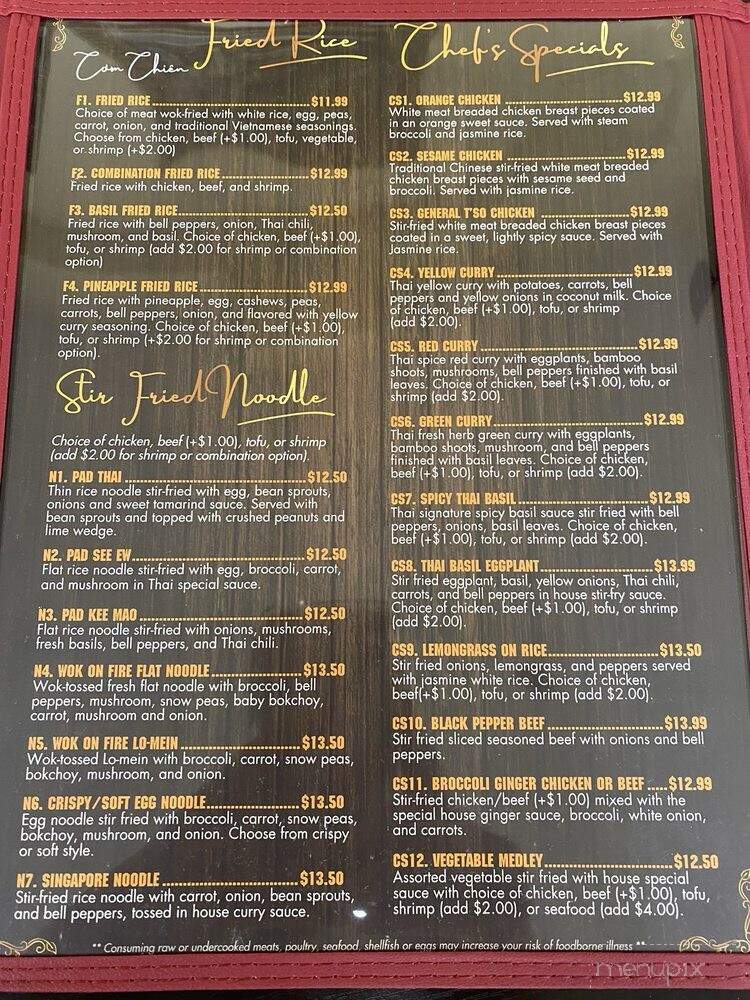 Cơm Chiên Fried Rice
F1. FRIED RICE $11.99
Choice of meat wok-fried with white rice, egg, peas,
carrot, onion, and traditional Vietnamese seasonings.
Choose from chicken, beef (+$1.00), tofu, vegetable,
or shrimp (+$2.00)
F2. COMBINATION FRIED RICE $12.99
Fried rice with chicken, beef, and shrimp.
F3. BASIL FRIED RICE $12.50
Fried rice with bell peppers, onion, Thai chili,
mushroom, and basil. Choice of chicken, beef (+$1.00),
tofu, or shrimp (add $2.00 for shrimp or combination
option)
F4. PINEAPPLE FRIED RICE $12.99
Fried rice with pineapple, egg, cashews, peas,
carrots, bell peppers, onion, and flavored with yellow
curry seasoning. Choice of chicken, beef (+$1.00),
tofu, or shrimp (+$2.00 for shrimp or combination
option).
Stir Fried Noodle
Choice of chicken, beef (+$1.00), tofu, or shrimp
(add $2.00 for shrimp or combination option).
N1. PAD THAI $12.50
Thin rice noodle stir-fried with egg, bean sprouts,
onions and sweet tamarind sauce. Served with
bean sprouts and topped with crushed peanuts and
lime wedge.
N2. PAD SEE EW $12.50
Flat rice noodle stir-fried with egg, broccoli, carrot,
and mushroom in Thai special sauce.
N3. PAD KEE MAO $12.50
Flat rice noodle stir-fried with onions, mushrooms,
fresh basils, bell peppers, and Thai chili.
N4. WOK ON FIRE FLAT NOODLE $13.50
Wok-tossed fresh flat noodle with broccoli, bell
peppers, mushroom, snow peas, baby bokchoy,
carrot, mushroom and onion.
N5. WOK ON FIRE LO-MEIN $13.50
Wok-tossed Lo-mein with broccoli, carrot, snow peas,
bokchoy, mushroom, and onion.
N6. CRISPY/SOFT EGG NOODLE $13.50
Egg noodle stir fried with broccoli, carrot, snow peas,
bokchoy, mushroom, and onion. Choose from crispy
or soft style.
N7. SINGAPORE NOODLE $13.50
Stir-fried rice noodle with carrot, onion, bean sprouts,
and bell peppers, tossed in house curry sauce.
Chef's Specials
CS1. ORANGE CHICKEN $12.99
White meat breaded chicken breast pieces coated
in an orange sweet sauce. Served with steam
broccoli and jasmine rice.
CS2. SESAME CHICKEN $12.99
Traditional Chinese stir-fried white meat breaded
chicken breast pieces with sesame seed and
broccoli. Served with jasmine rice.
CS3. GENERAL T'SO CHICKEN $12.99
Stir-fried white meat breaded chicken breast pieces
coated in a sweet, lightly spicy sauce. Served with
Jasmine rice.
CS4. YELLOW CURRY $12.99
Thai yellow curry with potatoes, carrots, bell
peppers and yellow onions in coconut milk. Choice
of chicken, beef (+$1.00), tofu, or shrimp
(add $2.00).
CS5. RED CURRY $12.99
Thai spice red curry with eggplants, bamboo
shoots, mushrooms, bell peppers finished with basil
leaves. Choice of chicken, beef (+$1.00), tofu, or
shrimp (add $2.00).
CS6. GREEN CURRY $12.99
Thai fresh herb green curry with eggplants,
bamboo shoots, mushroom, and bell peppers
finished with basil leaves. Choice of chicken,
beef (+$1.00), tofu, or shrimp (add $2.00).
CS7. SPICY THAI BASIL $12.99
Thai signature spicy basil sauce stir fried with bell
peppers, onions, basil leaves. Choice of chicken,
beef (+$1.00), tofu, or shrimp (add $2.00).
CS8. THAI BASIL EGGPLANT $13.99
Stir fried eggplant, basil, yellow onions, Thai chili,
carrots, and bell peppers in house stir-fry sauce.
Choice of chicken, beef (+$1.00), tofu, or shrimp
(add $2.00).
CS9. LEMONGRASS ON RICE $13.50
Stir fried onions, lemongrass, and peppers served
with jasmine white rice. Choice of chicken,
beef(+$1.00), tofu, or shrimp (add $2.00).
CS10. BLACK PEPPER BEEF $13.99
Stir fried sliced seasoned beef with onions and bell
peppers.
CS11. BROCCOLI GINGER CHICKEN OR BEEF $12.99
Stir-fried chicken/beef (+$1.00) mixed with the
special house ginger sauce, broccoli, white onion,
and carrots.
CS12. VEGETABLE MEDLEY $12.50
Assorted vegetable stir fried with house special
sauce with choice of chicken, beef (+$1.00), tofu,
shrimp (add $2.00), or seafood (add $4.00).
** Consuming raw or undercooked meats, poultry, seafood, shellfish or eggs may increase your risk of foodborne illness **
menupix